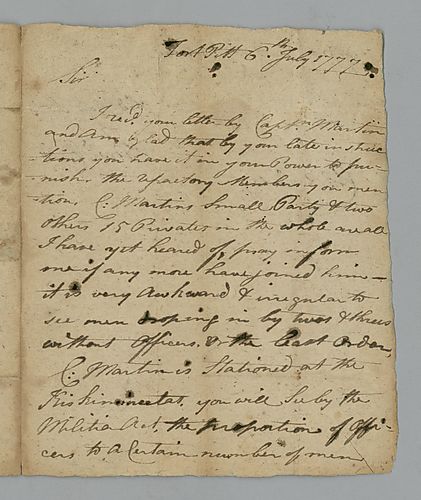 Fort Pitt 6th July 1777
Sir
I recd. your letter by Captn. Martin
and Am Glad that by your late instruc
tions you have it in your Power to pu-
nish the refactory Members you men
tion, C: Martins Small Party & two
others 15 Privates in the whole are all
I have yet heared of, pray inform
me if any more have joined him –
it is very Awkward & irregular to
see men droping in by twos & threes
without Officers & the least Order,
C: Martin is Stationed at the
Kiskiminetas. you will See by the
Militia Act, the proportion of Offi-
cers to a Certain number of men